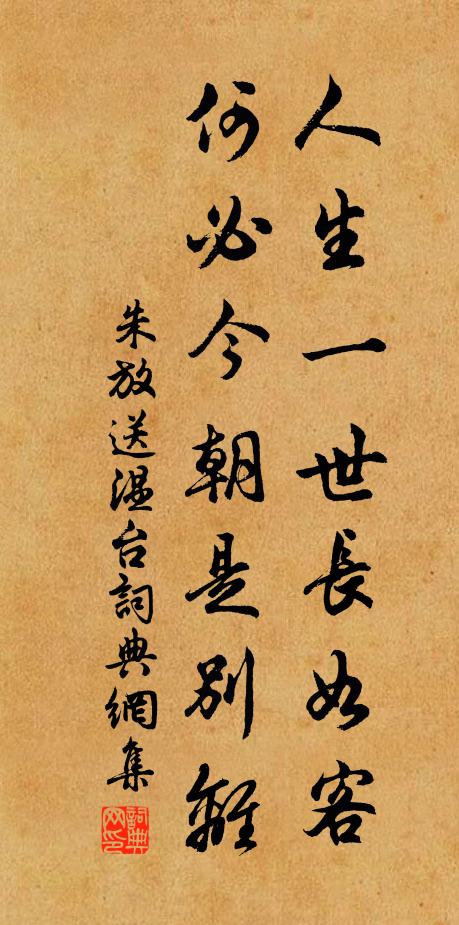 人生一世長如客
何必今朝是別離
朱放送温台詞典網集
詞典
网印